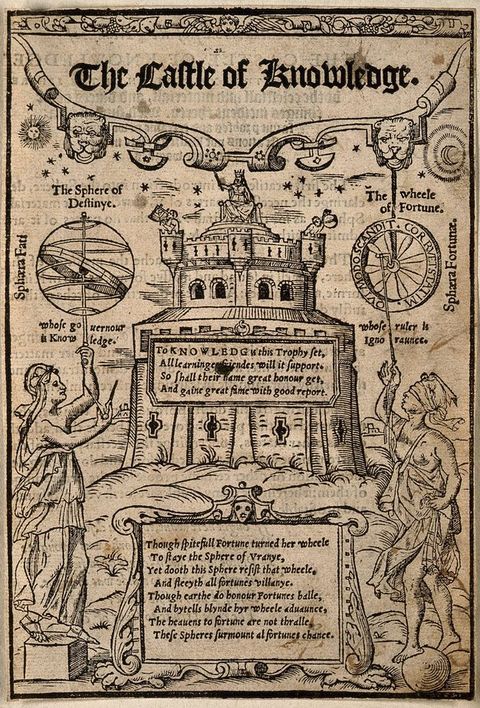 The Castle of Knowledge.
The Sphere of
Destinye.
The wheele
of Fortune.
Sphæra Fati
QVOMODO SCANDIT. CORRVET STATIM
Sphæra Fortunæ.
whose gouernour
is Knowledge.
whose ruler is
Ignoraunce.
To KNOWLEDG is this Trophy set,
All learninges friendes will it support.
So shall their name great honour get,
And gaine great fame with good report.
Though spitefull Fortune turned her wheele
To staye the Sphere of Vranye,
Yet dooth this Sphere resist that wheele,
And fleeyth all fortunes villanye.
Though earthe do honour Fortunes balle,
And bytells blynde hyr wheele aduaunce,
The heauens to fortune are not thralle,
These Spheres surmount al fortunes chance.